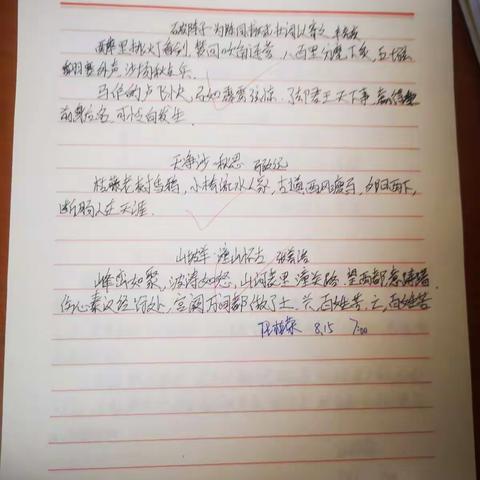 破阵子 为陈同甫赋壮词以寄之 辛弃疾
醉里挑灯看剑,梦回吹角连营,八百里分麾下炙,五十弦
翻塞外声,沙场秋点兵。
马作的卢飞快,弓如霹雳弦惊。了却君王天下事,赢得生
前身后名,可怜白发生。
天净沙 秋思 马致远
枯藤老树昏鸦,小桥流水人家,古道西风瘦马,夕阳西下,
断肠人在天涯。
山坡羊 潼关怀古 张养浩
峰峦如聚,波涛如怒,山河表里潼关路。望西都,意踌躇。
伤心秦汉经行处,宫阙万间都做了土。兴,百姓苦,亡,百姓苦
8.15 7:00